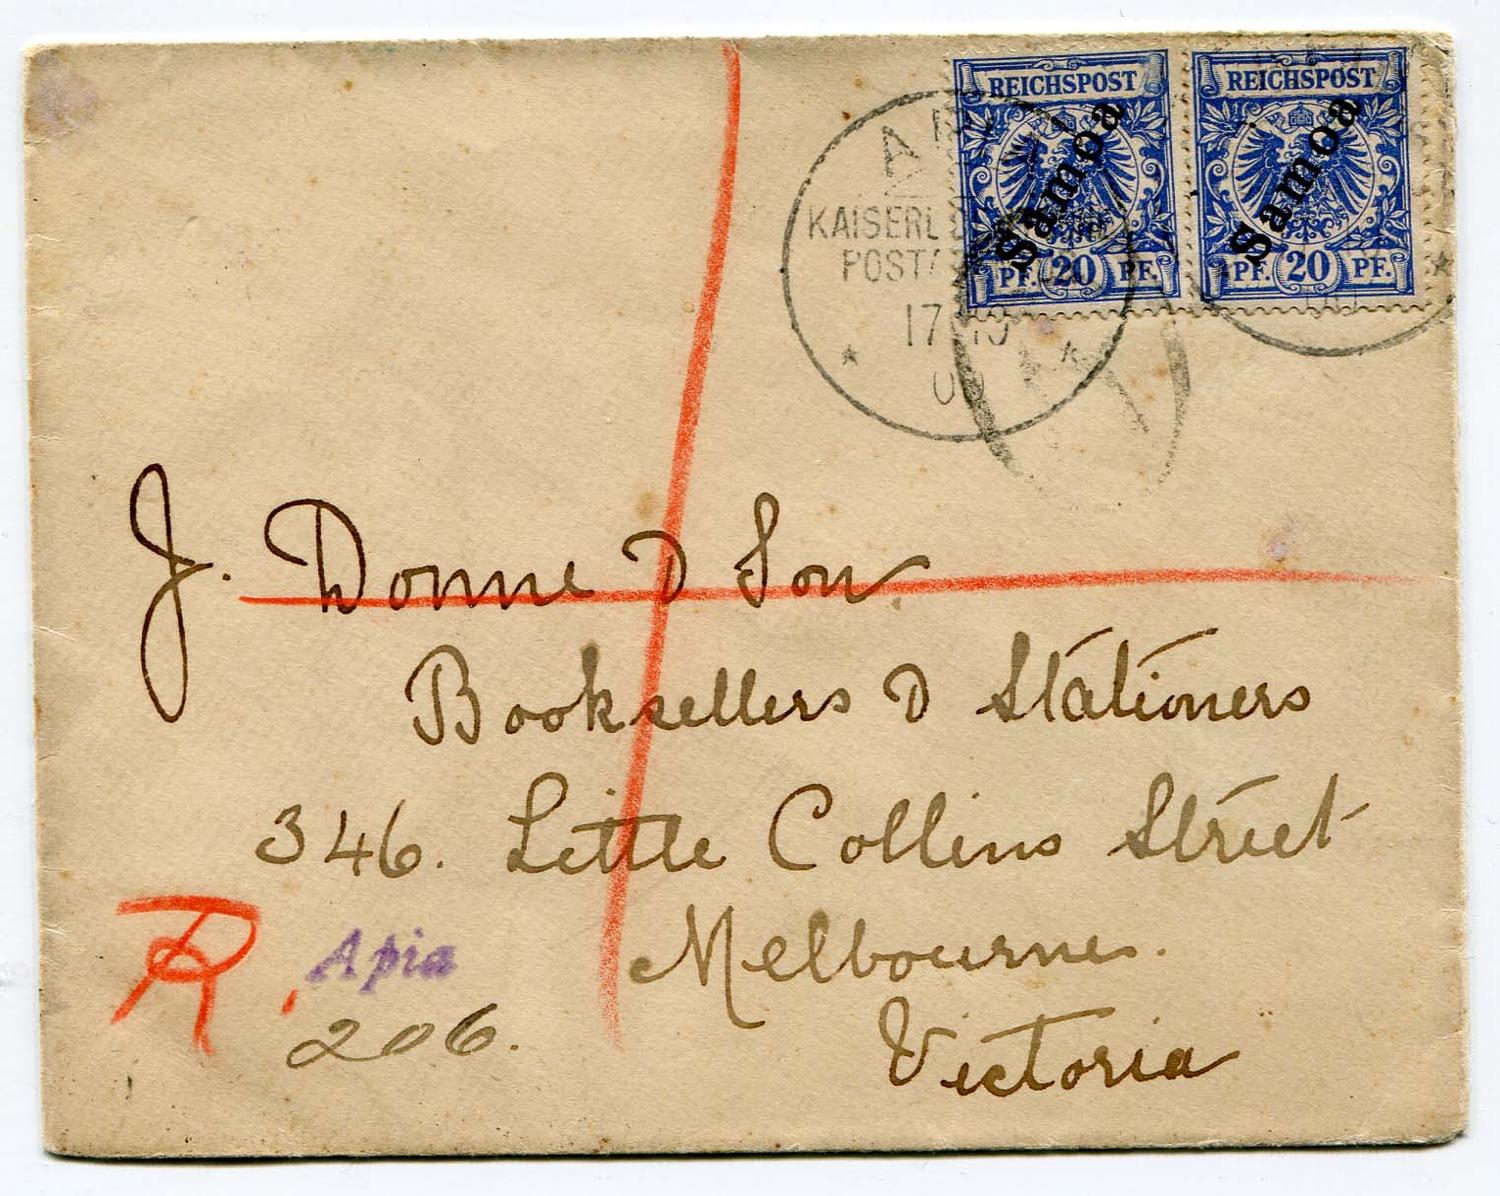 REICHSPOST REICHSPOST
Samoa Samoa
PF. 20 PF. PF. 20 PF.
KAISERL
POST
17
J. Donne & Son.
Booksellers & Stationers
346. Little Collins Street
Melbourne.
Victoria
R, Apia
206.